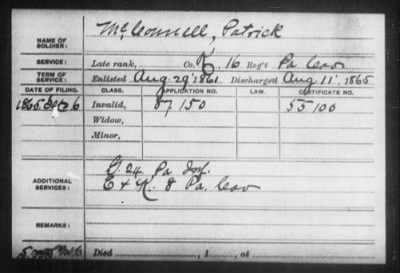 McConnell, Patrick
NAME OF SOLDIER:
SERVICE: Late rank, Co. 16 Reg't Pa Cav
TERM OF SERVICE: Enlisted Aug 29, 1861, Discharged Aug 11, 1865
DATE OF FILING. CLASS. APPLICATION NO. CERTIFICATE NO.
1865 Dec 26 Invalid, 87150 55100
Widow,
Minor,
G. 24 Pa Inf.
ADDITIONAL SERVICES: E & K. 8 Pa Cav
REMARKS:
Died , 1 , at